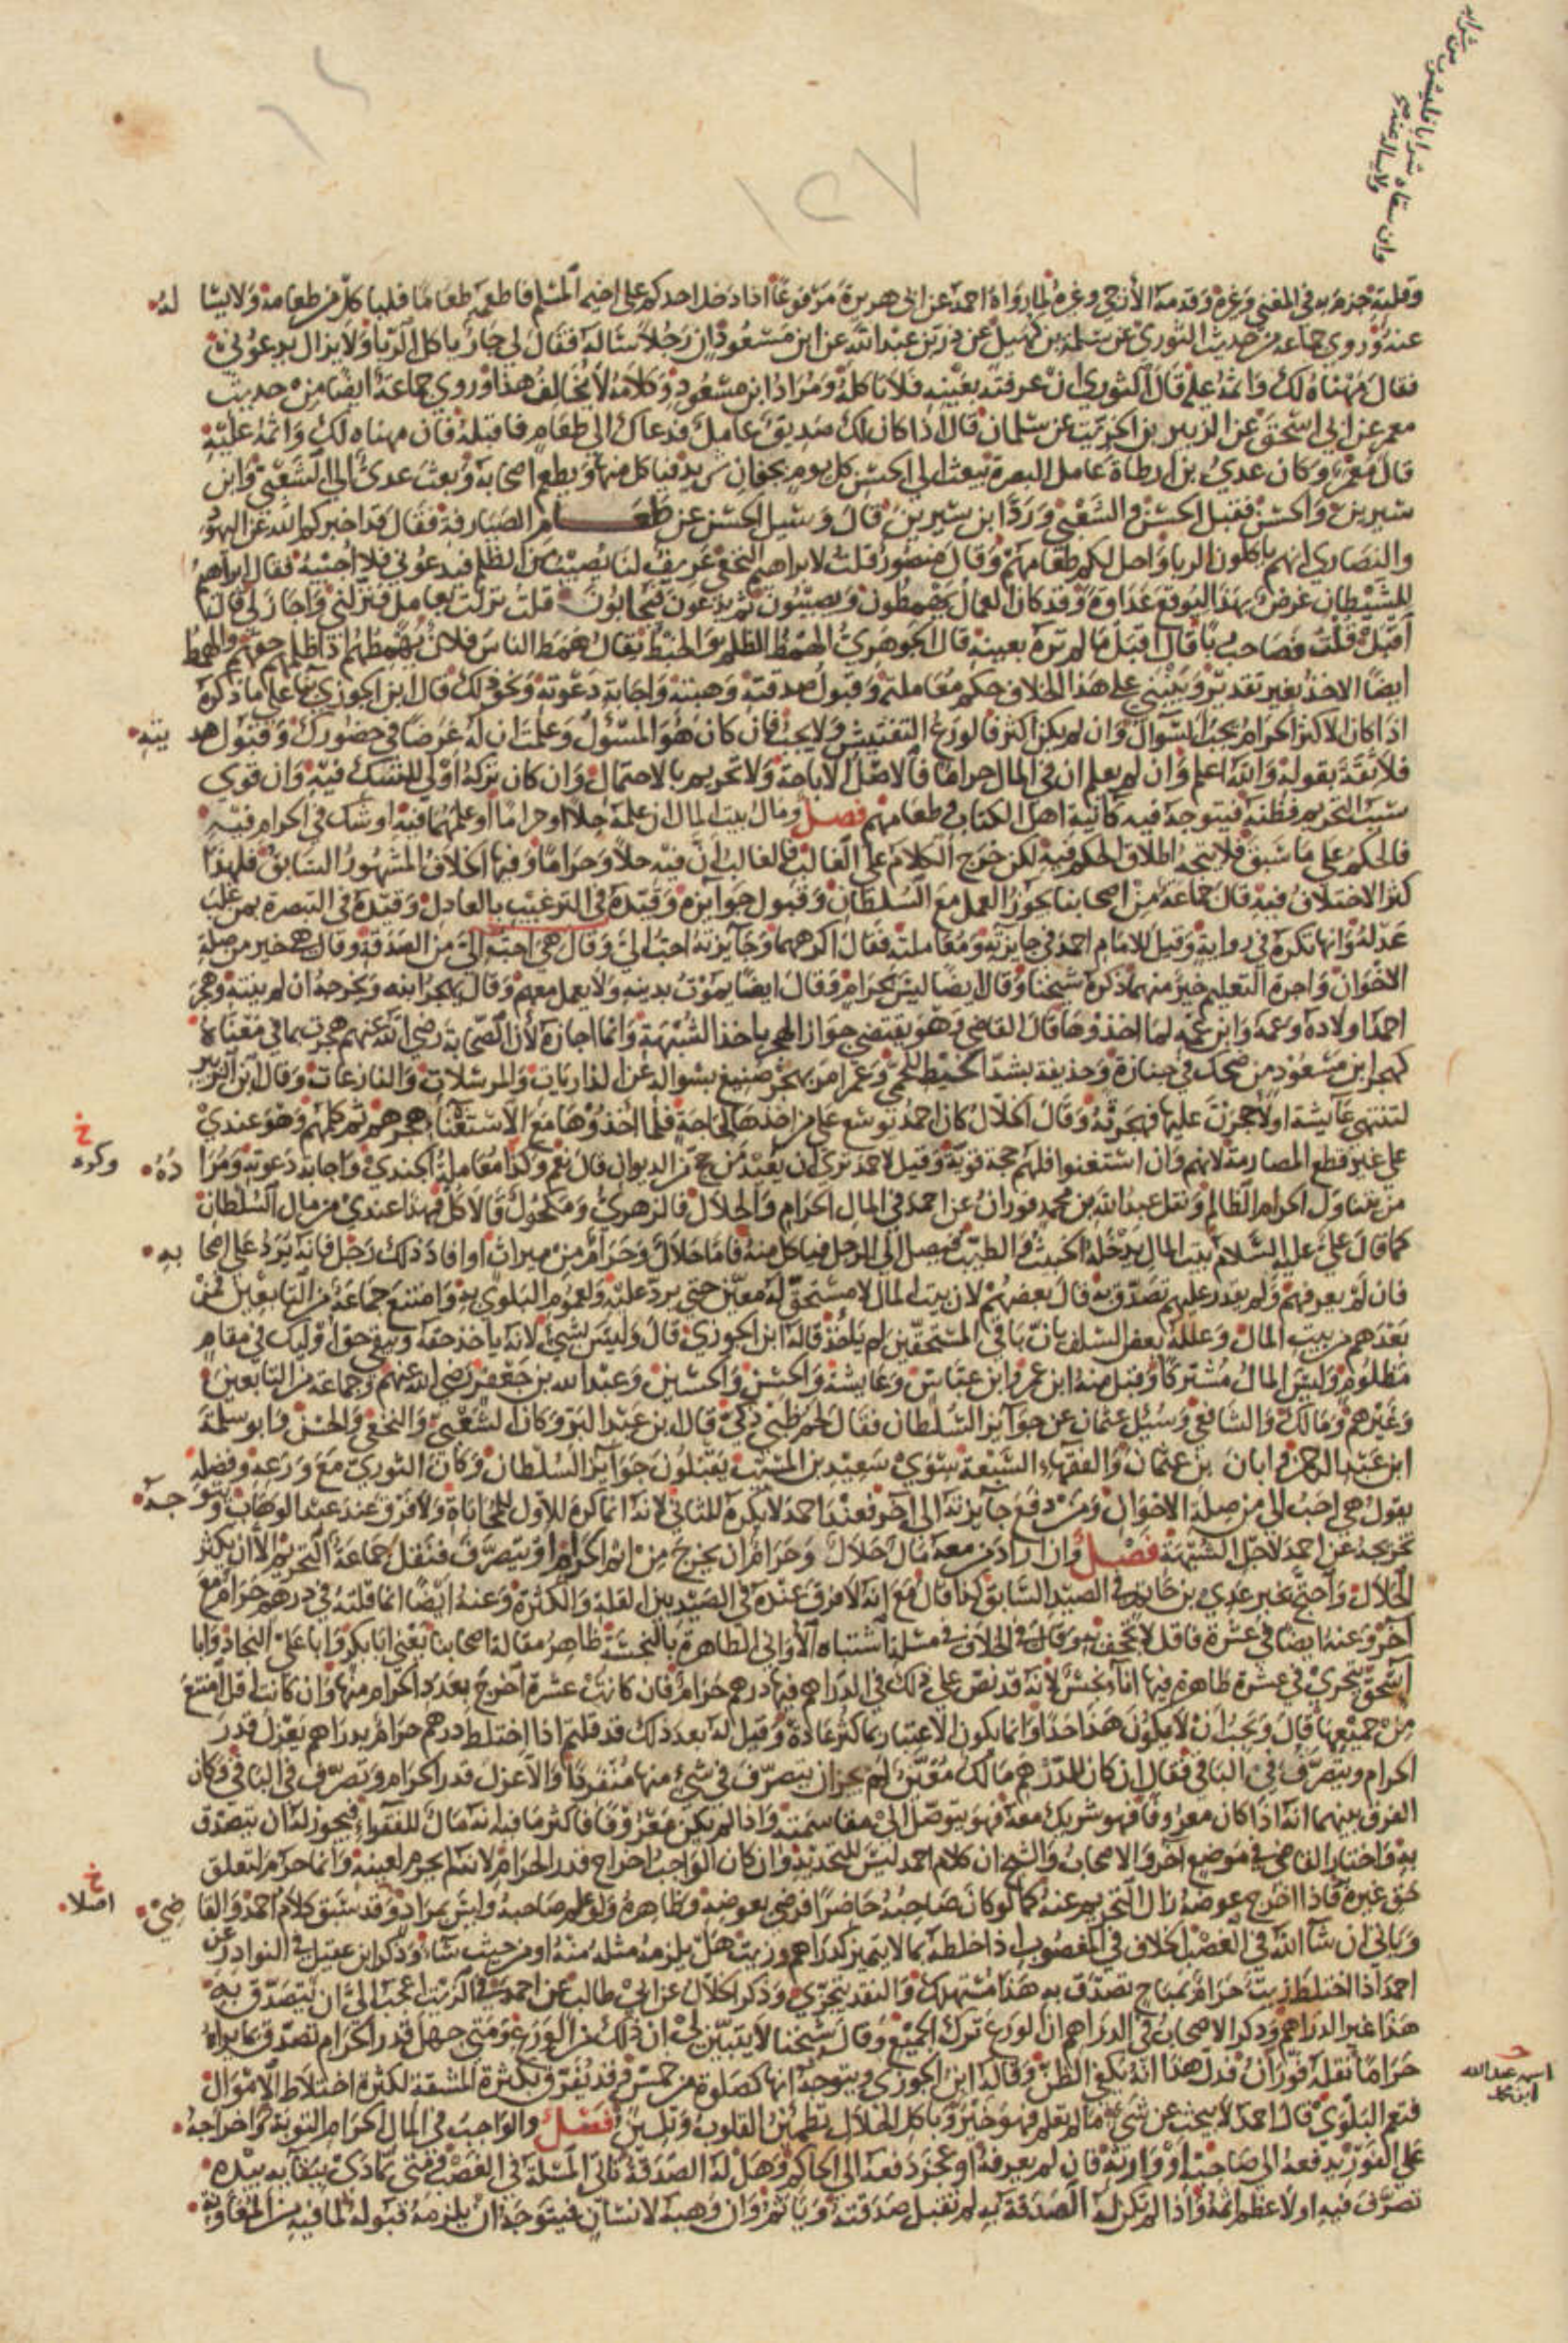 وان سقاه شرابا فليشرب من شرابه
ولا يساله عنه
١٢٧
وقلته جزم به فى المغني وغيره وقدمه الأزجي وغيره لما رواه احمد عن ابي هريرة مرفوعًا اذا دخل احدكم على اخيه المسلم فاطعمه طعامًا فلياكل من طعامه ولا يسا له
عنه وروى جماعة من حديث الثوري عن سلمة بن كهيل عن ذر بن عبد الله عن ابن مسعود ان رجلا ساله فقال لي جار ياكل الربا ولا يزال يدعوني
فقال مهناه لك واثمه عليه قال الثوري ان عرفته بعينه فلا تاكله ومراد ابن مسعود وكلامه لا يخالف هذا وروى جماعة ايضا من حديث
معمر عن ابي اسحق عن الزبير بن الخريت عن سلمان قال اذا كان لك صديق عامل فدعاك الى طعام فاقبله فان مهناه لك واثمه عليه
قال معمر وكان عدي بن ارطاة عامل البصرة يبعث الى الحسن كل يوم بجفان ثريد فياكل منها ويطعم اصحابه وبعث عدي الى الشعبي وابن
سيرين والحسن فقبل الحسن والشعبي ورد ابن سيرين قال وسيل الحسن عن طعام الصيارفة فقال قد اخبركم الله عن اليهود
والنصارى انهم ياكلون الربا واحل لكم طعامهم وقال منصور قلت لابراهيم النخعي عريف لنا يصيب من الظلم فيدعوني فلا اجيبه فقال ابراهيم
للشيطان غرض بهذا ليوقع عداوة وقد كان العمال يهمطون ويصيبون ثم يدعون فيجابون قلت نزلت بعامل فنزلني واجازني قال
اقبل قلت فصاحب ربا قال اقبل ما لم تره بعينه قال الجوهري الهمط الظلم والخبط يقال همط الناس فلان يهمطهم اذا ظلمهم حقهم والهمط
ايضًا الاخذ بغير تقدير وينبني على هذا الخلاف حكم معاملته وقبول صدقته وهبته واجابة دعوته ونحو ذلك قال ابن الجوزي بناء على ما ذكره
اذا كان الاكثر الحرام يجب السؤال وان لم يكن اكثر فالورع التفتيش ولا يجب فان كان هو المسؤل وعلمت ان له غرضا في حضورك وقبول هد يته
فلا ثقة بقوله والله اعلم وان لم يعلم ان في المال حراما فالاصل الاباحة ولا تحريم بالاحتمال وان كان تركه اولى للشك فيه وان قوي
سبب التحريم فظنه فيتوجه فيه كانية اهل الكتاب وطعامهم فصل ومال بيت المال ان علمه حلالا او حراما او علمهما فيه او شك في الحرام فيه
فالحكم على ما سبق فلا يتجه اطلاق الحكم فيه لكن خرج الكلام على الغالب فالغالب ان فيه حلالا وحراما وفيها الخلاف المشهور السابق فلهذا
كثر الاختلاف فيه قال جماعة من اصحابنا يجوز العمل مع السلطان وقبول جوايزه وقيده في الترغيب بالعادل وقيده في التبصرة بمن غلب
عدله وانها تكره في رواية وقيل للامام احمد في جايزته ومعاملته فقال اكرههما وجايزته احب الي وقال هي احب الي من الصدقة وقال هي خير من صلة
الاخوان واجرة التعليم خير منهما ذكره شيخنا وقال ايضا ليس بحرام وقال ايضا يموت بدينه ولا يعمل معهم وقال يهجر ابنه ويخرجه ان لم ينته وهجر
احمد اولاده وعمه وابن عمه لما اخذوها قال القاضي وهو يقتضي جواز الهجر باخذ الشبهة وانما اجازه لان الصحابة رضي الله عنهم هجرت بما في معناه
كهجر ابن مسعود من ضحك في جنازة وحذيفة بشد الخيط للحمى وعمر امر بهجر صبيغ بسواله عن الذاريات والمرسلات والنازعات وقال ابن الزبير
لتنتهي عايشة او لاحجرن عليها فهجرته وقال الخلال كان احمد توسع على من اخذها لحاجة فلما اخذوها مع الاستغنا هجرهم ثم كلمهم وهو عندي
على غير قطع المصارمة لانهم وان استغنوا فلهم حجة قوية وقيل لاحمد ترى ان يعيد من حج من الديوان قال نعم وكذا معاملة الجندي واجابة دعوته ومرا ده
خ وكره
من يتناول الحرام الظالم ونقل عبد الله بن محمد فوران عن احمد في المال الحرام والحلال فالزهري ومكحول قالا كل فهذا عندي من مال السلطان
كما قال علي عليه السلام بيت المال يدخله الخبيث والطيب فيصل الى الرجل فياكل منه فاما حلال وحرام من ميراث او افاد ذلك رجل فانه يرد على اصحا به
فان لم يعرفهم ولم يقدر عليهم تصدق به قال بعضهم لان بيت المال لا مستحق له معين حتى يرد عليه ولعموم البلوى به وامتنع جماعة من التابعين فمن
بعدهم من بيت المال وعلله بعض السلف بان باقي المستحقين لم ياخذ قاله ابن الجوزي قال وليس بشيء لانه ياخذ حقه ويبقى حق اوليك في مقام
مظلوم وليس المال مشتركا وقبل منه ابن عمر وابن عباس وعايشة والحسن والحسين وعبد الله بن جعفر رضي الله عنهم وجماعة من التابعين
وغيرهم ومالك والشافعي وسئل عثمان عن جوايز السلطان فقال لحم ظبي ذكي قال ابن عبد البر وكان الشعبي والنخعي والحسن وابو سلمة
ابن عبد الرحمن وابان بن عثمان والفقهاء السبعة سوى سعيد بن المسيب يقبلون جوايز السلطان وكان الثوري مع ورعه وفضله
يقول هي احب الي من صلة الاخوان ومن دفع جايزته الى آخر فعند احمد لا يكره للثاني لانه انما كره للاول للمحاباة ولا فرق عند عبد الوهاب ويتو جه
تخريجه عن احمد لاجل الشبهة فصل وان اراد من معه مال حلال وحرام ان يخرج من اثم الحرام او يتصرف فنقل جماعة التحريم الا ان يكثر
الحلال واحتج بخبر عدي بن حاتم في الصيد السابق كذا قال مع انه لا فرق عنده في الصيد بين القلة والكثرة وعنه ايضًا انما قلته في درهم حرام مع
آخر وعنه ايضا في عشرة فاقل لا تجحف به وقال في الخلاف في مسئلة اشتباه الأواني الطاهرة بالنجسة ظاهر مقالة اصحابنا يعني ابا بكر وابا علي النجاد وابا
اسحق يتحرى في عشرة طاهرة فيها اناء نجس لانه قد نص على ذلك في الدراهم فيها درهم حرام فان كانت عشرة اخرج بعدد الحرام منها وان كانت اقل امتنع
من جميعها قال ويجب ان لا يكون هذا حدا وانما يكون الاعتبار بما كثر عادة وقيل له بعد ذلك قد قلتم اذا اختلط درهم حرام بدراهم يعزل قدر
الحرام ويتصرف في الباقي فقال ان كان للدرهم مالك معين لم يجز ان يتصرف في شيء منها منفردا والا عزل قدر الحرام وتصرف في الباقي وكان
الفرق بينهما انه اذا كان معروفا فهو شريك معه فهو يتوصل الى مقاسمته واذا لم يكن معروفا فاكثر ما فيه انه مال للفقراء فيجوز له ان يتصدق
به واختار القاضي في موضع آخر والاصحاب والشيخ ان كلام احمد ليس للتحديد وان كان الواجب اخراج قدر الحرام لانه لم يحرم لعينه وانما حرم لتعلق
حق غيره فاذا اخرج عوضه زال التحريم عنه كما لو كان صاحبه حاضرا فرضي بعوضه وظاهره ولو علم صاحبه وليس بمراد وقد سبق كلام احمد والقا ضي
خ اصلا
وياتي ان شا الله في الغصب الخلاف في المغصوب اذا خلطه بما لا يتميز كدراهم وزيت هل يلزمه مثله منه او من حيث شاء وذكر ابن عقيل في النوادر عن
احمد اذا اختلط زيت حرام بمباح تصدق به هذا مستهلك والنقد يتحرى وذكر الخلال عن ابي طالب عن احمد في الزيت اعجب الي ان يتصدق به
هذا غير الدراهم وذكر الاصحاب في الدراهم ان الورع ترك الجميع وقال شيخنا لا يتبين لي ان ذلك من الورع ومتى جهل قدر الحرام تصدق بما يراه
حراما نقله فوران فدل هذا انه يكفي الظن وقاله ابن الجوزي ويتوجه انها كصلوة من خمس وقد يفرق بكثرة المشقة لكثرة اختلاط الاموال
اسمه عبد الله
ابن محمد
فتعم البلوى قال احمد لا يبحث عن شيء ما لم تعلم فهو خير وباكل الحلال تطمئن القلوب وتلين فصل والواجب في المال الحرام التوبة واخراجه
على الفور يدفعه الى صاحبه او وارثه فان لم يعرفه او عجز دفعه الى الحاكم وهل له الصدقة تاتي المسئلة في الغصب ومتى تمادى ببقائه بيده
تصرف فيه اولا عظم اثمه واذا لم تكن له الصدقة به لم تقبل صدقته وياثم وان وهبه لانسان فيتوجه ان يلزمه قبوله لما فيه من المعاونة